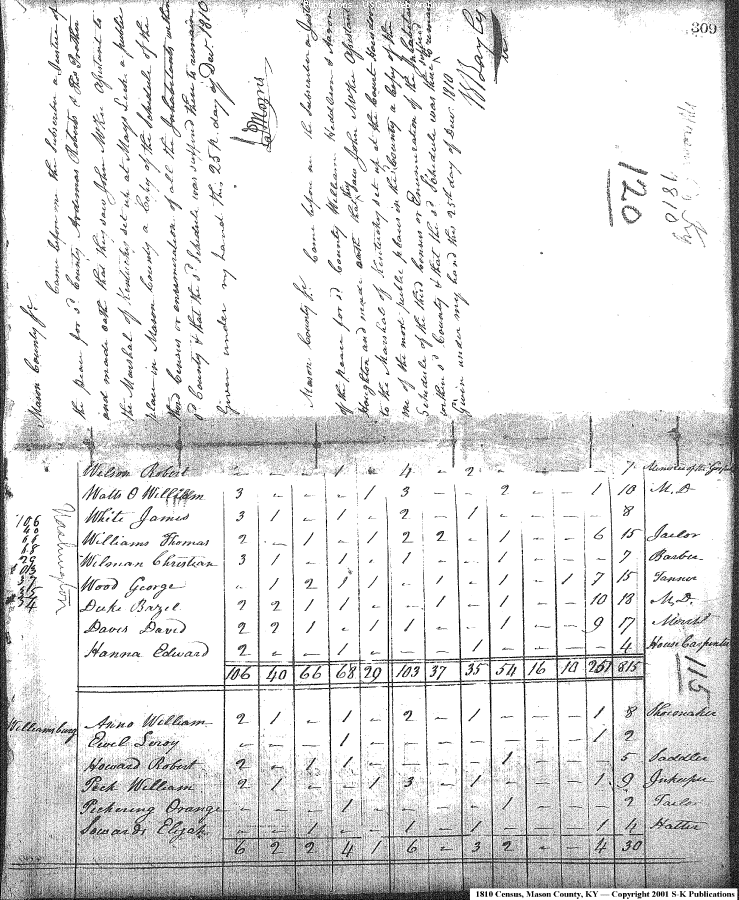 309
Mason County Sc
Came before me the Subscriber a Justice of
the peace for sd County Ardemas Roberts &
and made oath that they saw John McKee Assistant to
the Marshal of Kentucky set up at Mays Lick a public
place in Mason County a Copy of the Schedule of the
third Census or enumeration of all the Inhabitants within
sd County & that the sd Schedule was suffered there to remain
Given under my hand this 25th day of Decr. 1810
Morris
Mason County Sc Came before me the Subscriber a Justice
of the peace for sd County William Huddleson &
Houghton and made oath that they saw John McKee Assistant
to the Marshal of Kentucky set up at the Court House
one of the most public places in the County a Copy of the
Schedule of the third Census or Enumeration of the Inhabitants
within sd County & that the sd Schedule was suffered there to remain
Given under my hand this 25th day of Decr 1810
W Bayly
120
1810
Ky
Washington
106
40
66
68
29
103
37
35
54
Wilson Robert - - - 1 - 4 - 2 - - - - 7 Minister of the Gospel
Watts O William 3 - - - 1 3 - - 2 - - 1 10 M.D
White James 3 1 - 1 - 2 - 1 - - - 8
Williams Thomas 2 - 1 - 1 2 2 - 1 - - 6 15 Jaelor
Wilman Christian 3 1 - 1 - 1 - - 1 - - - 7 Barber
Wood George - 1 2 1 1 - 1 - 1 - 1 7 15 Tanner
Duke Bazel 2 2 1 1 - - - 1 - 1 - - 10 18 M.D.
Davis David 2 2 1 - 1 1 - - 1 - - 9 17
Hanna Edward 2 - - 1 - - - 1 - - - - 4 House Carpenter
106 40 66 68 29 103 37 35 54 16 10 251 815
115
Williamsburg
Anno William 2 1 - 1 - 2 - 1 - - - 1 8 Shoemaker
Ewel Leroy - - - 1 - - - - - - - 1 2
Howard Robert 2 - 1 1 - - - - 1 - - - 5 Saddler
Peck William 2 1 - - 1 3 - 1 - - - 1 9 Inkeeper
Pickering Orange - - - 1 - - - - 1 - - - 2 Tailor
Sowards Elijah - - 1 - - 1 - 1 - - - 1 4 Hatter
6 2 2 4 1 6 - 3 2 - - 4 30
1810 Census, Mason County, KY — Copyright 2001 S-K Publications